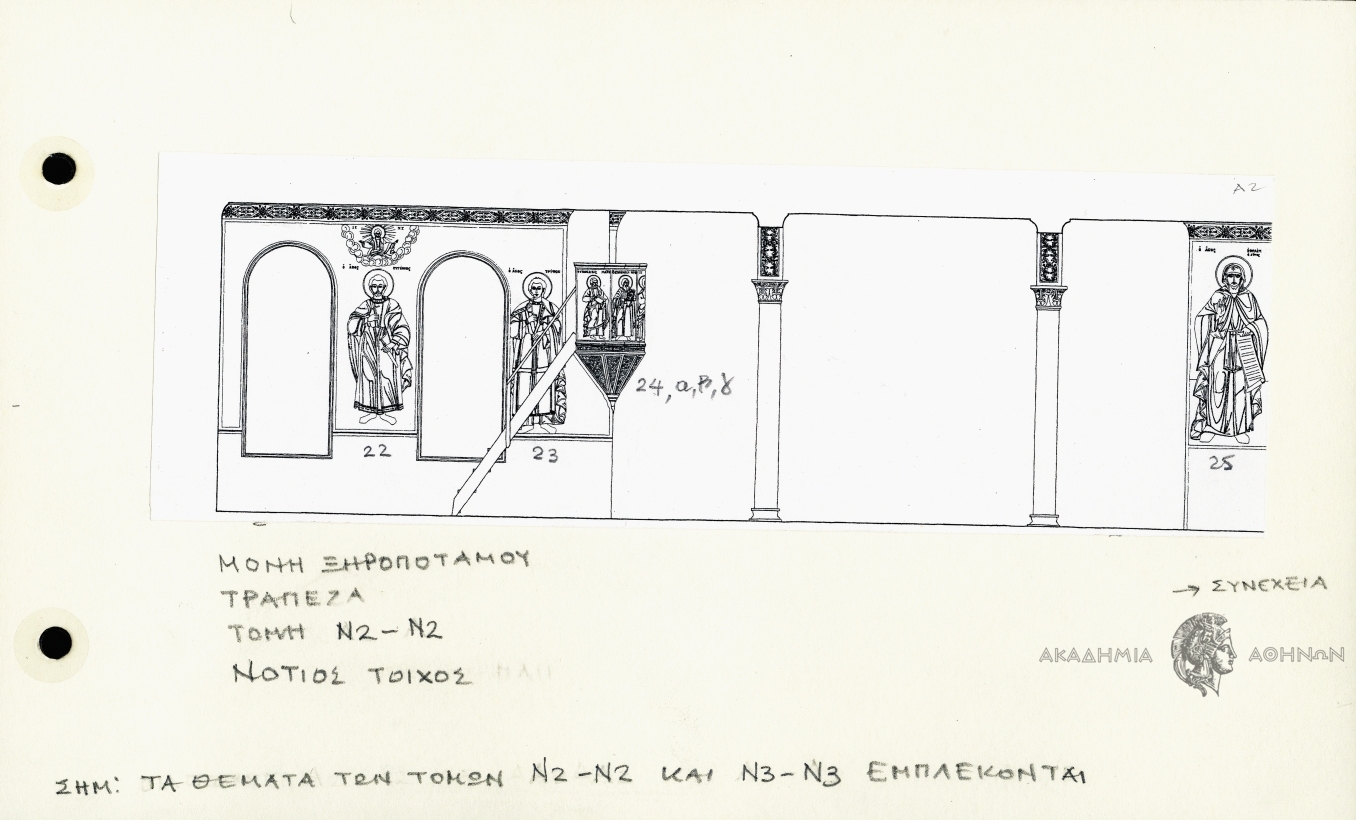 Α2
24,α,β,γ
22
23
25
ΜΟΝΗ ΞΗΡΟΠΟΤΑΜΟΥ
ΤΡΑΠΕΖΑ
ΤΟΜΗ Ν2-Ν2
ΝΟΤΙΟΣ ΤΟΙΧΟΣ
→ ΣΥΝΕΧΕΙΑ
ΑΚΑΔΗΜΙΑ ΑΘΗΝΩΝ
ΣΗΜ: ΤΑ ΘΕΜΑΤΑ ΤΩΝ ΤΟΜΩΝ Ν2-Ν2 ΚΑΙ Ν3-Ν3 ΕΜΠΛΕΚΟΝΤΑΙ